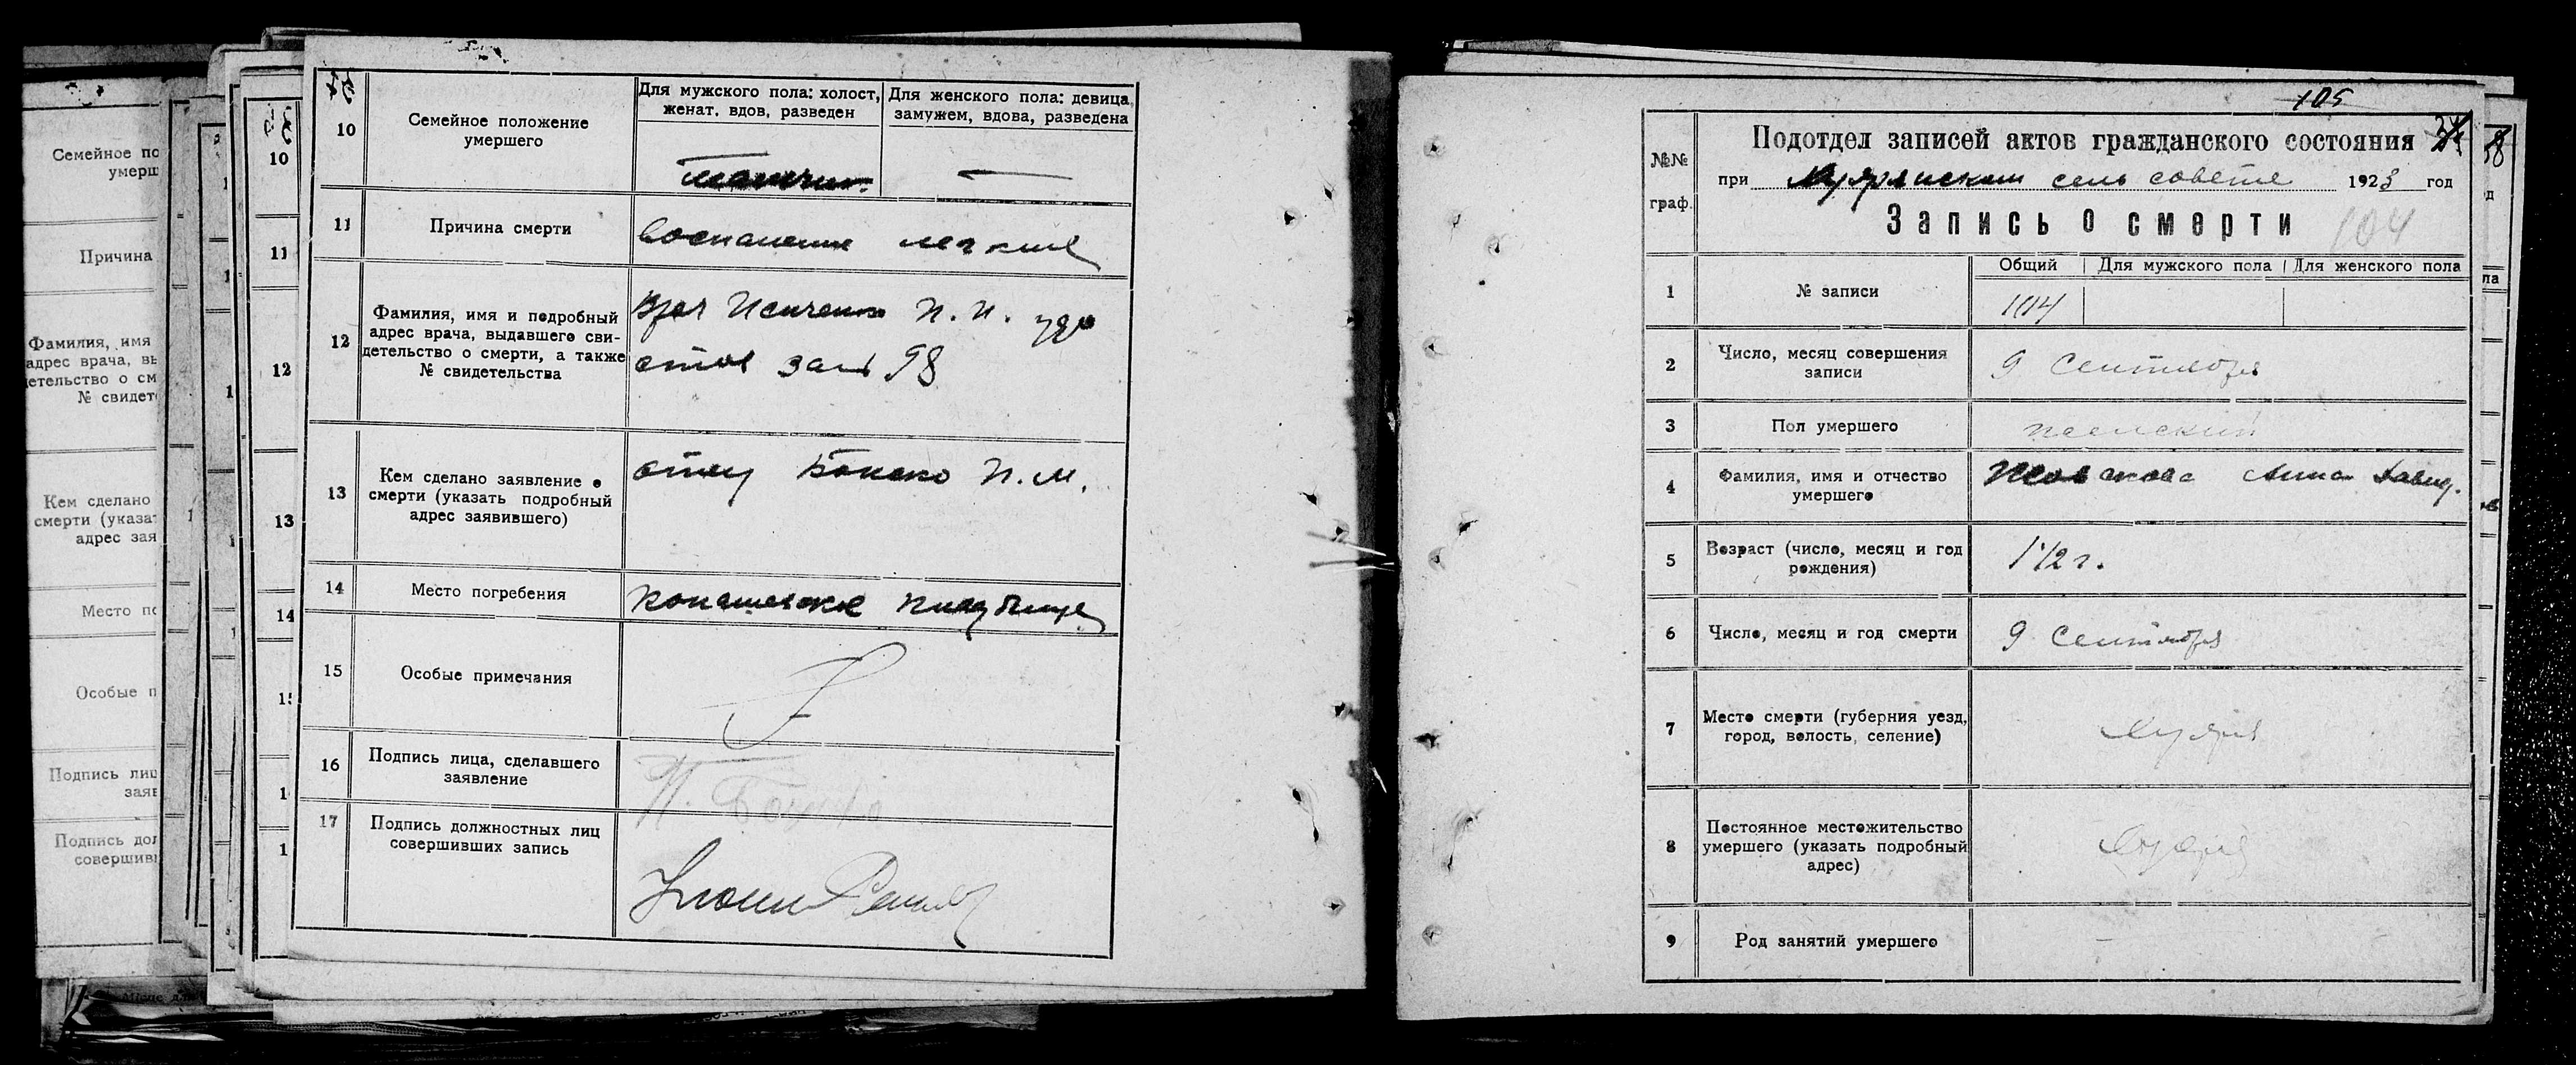 10
Семейное положение
умершего
Для мужского пола: холост,
женат, вдов, разведен
Для женского пола: девица,
замужем, вдова, разведена
—
11
Причина смерти
воспаление легких
12
Фамилия, имя и подробный
адрес врача, выдавшего сви-
детельство о смерти, а также
№ свидетельства
врач П. П.
98
13
Кем сделано заявление о
смерти (указать подробный
адрес заявившего)
отец Бонько П. М.
14
Место погребения
кладбище
15
Особые примечания
16
Подпись лица, сделавшего
заявление
17
Подпись должностных лиц
совершивших запись
Семейное по
умерш
Причина
Фамилия, имя
адрес врача, вы
детельство о см
№ свидет
Кем сделано
смерти (указат
адрес зая
Место по
Особые п
Подпись лиц
заяв
Подпись дол
совершивш
10
11
12
13
14
105
№№
граф.
Подотдел записей актов гражданского состояния
при сель совете 1923 год
Запись о смерти
104
Общий
Для мужского пола
Для женского пола
1
№ записи
104
2
Число, месяц совершения
записи
9 Сентября
3
Пол умершего
женский
4
Фамилия, имя и отчество
умершего
Анна Давид.
5
Возраст (число, месяц и год
рождения)
1 1/2 г.
6
Число, месяц и год смерти
9 Сентября
7
Место смерти (губерния уезд,
город, волость, селение)
8
Постоянное местожительство
умершего (указать подробный
адрес)
9
Род занятий умершего
–